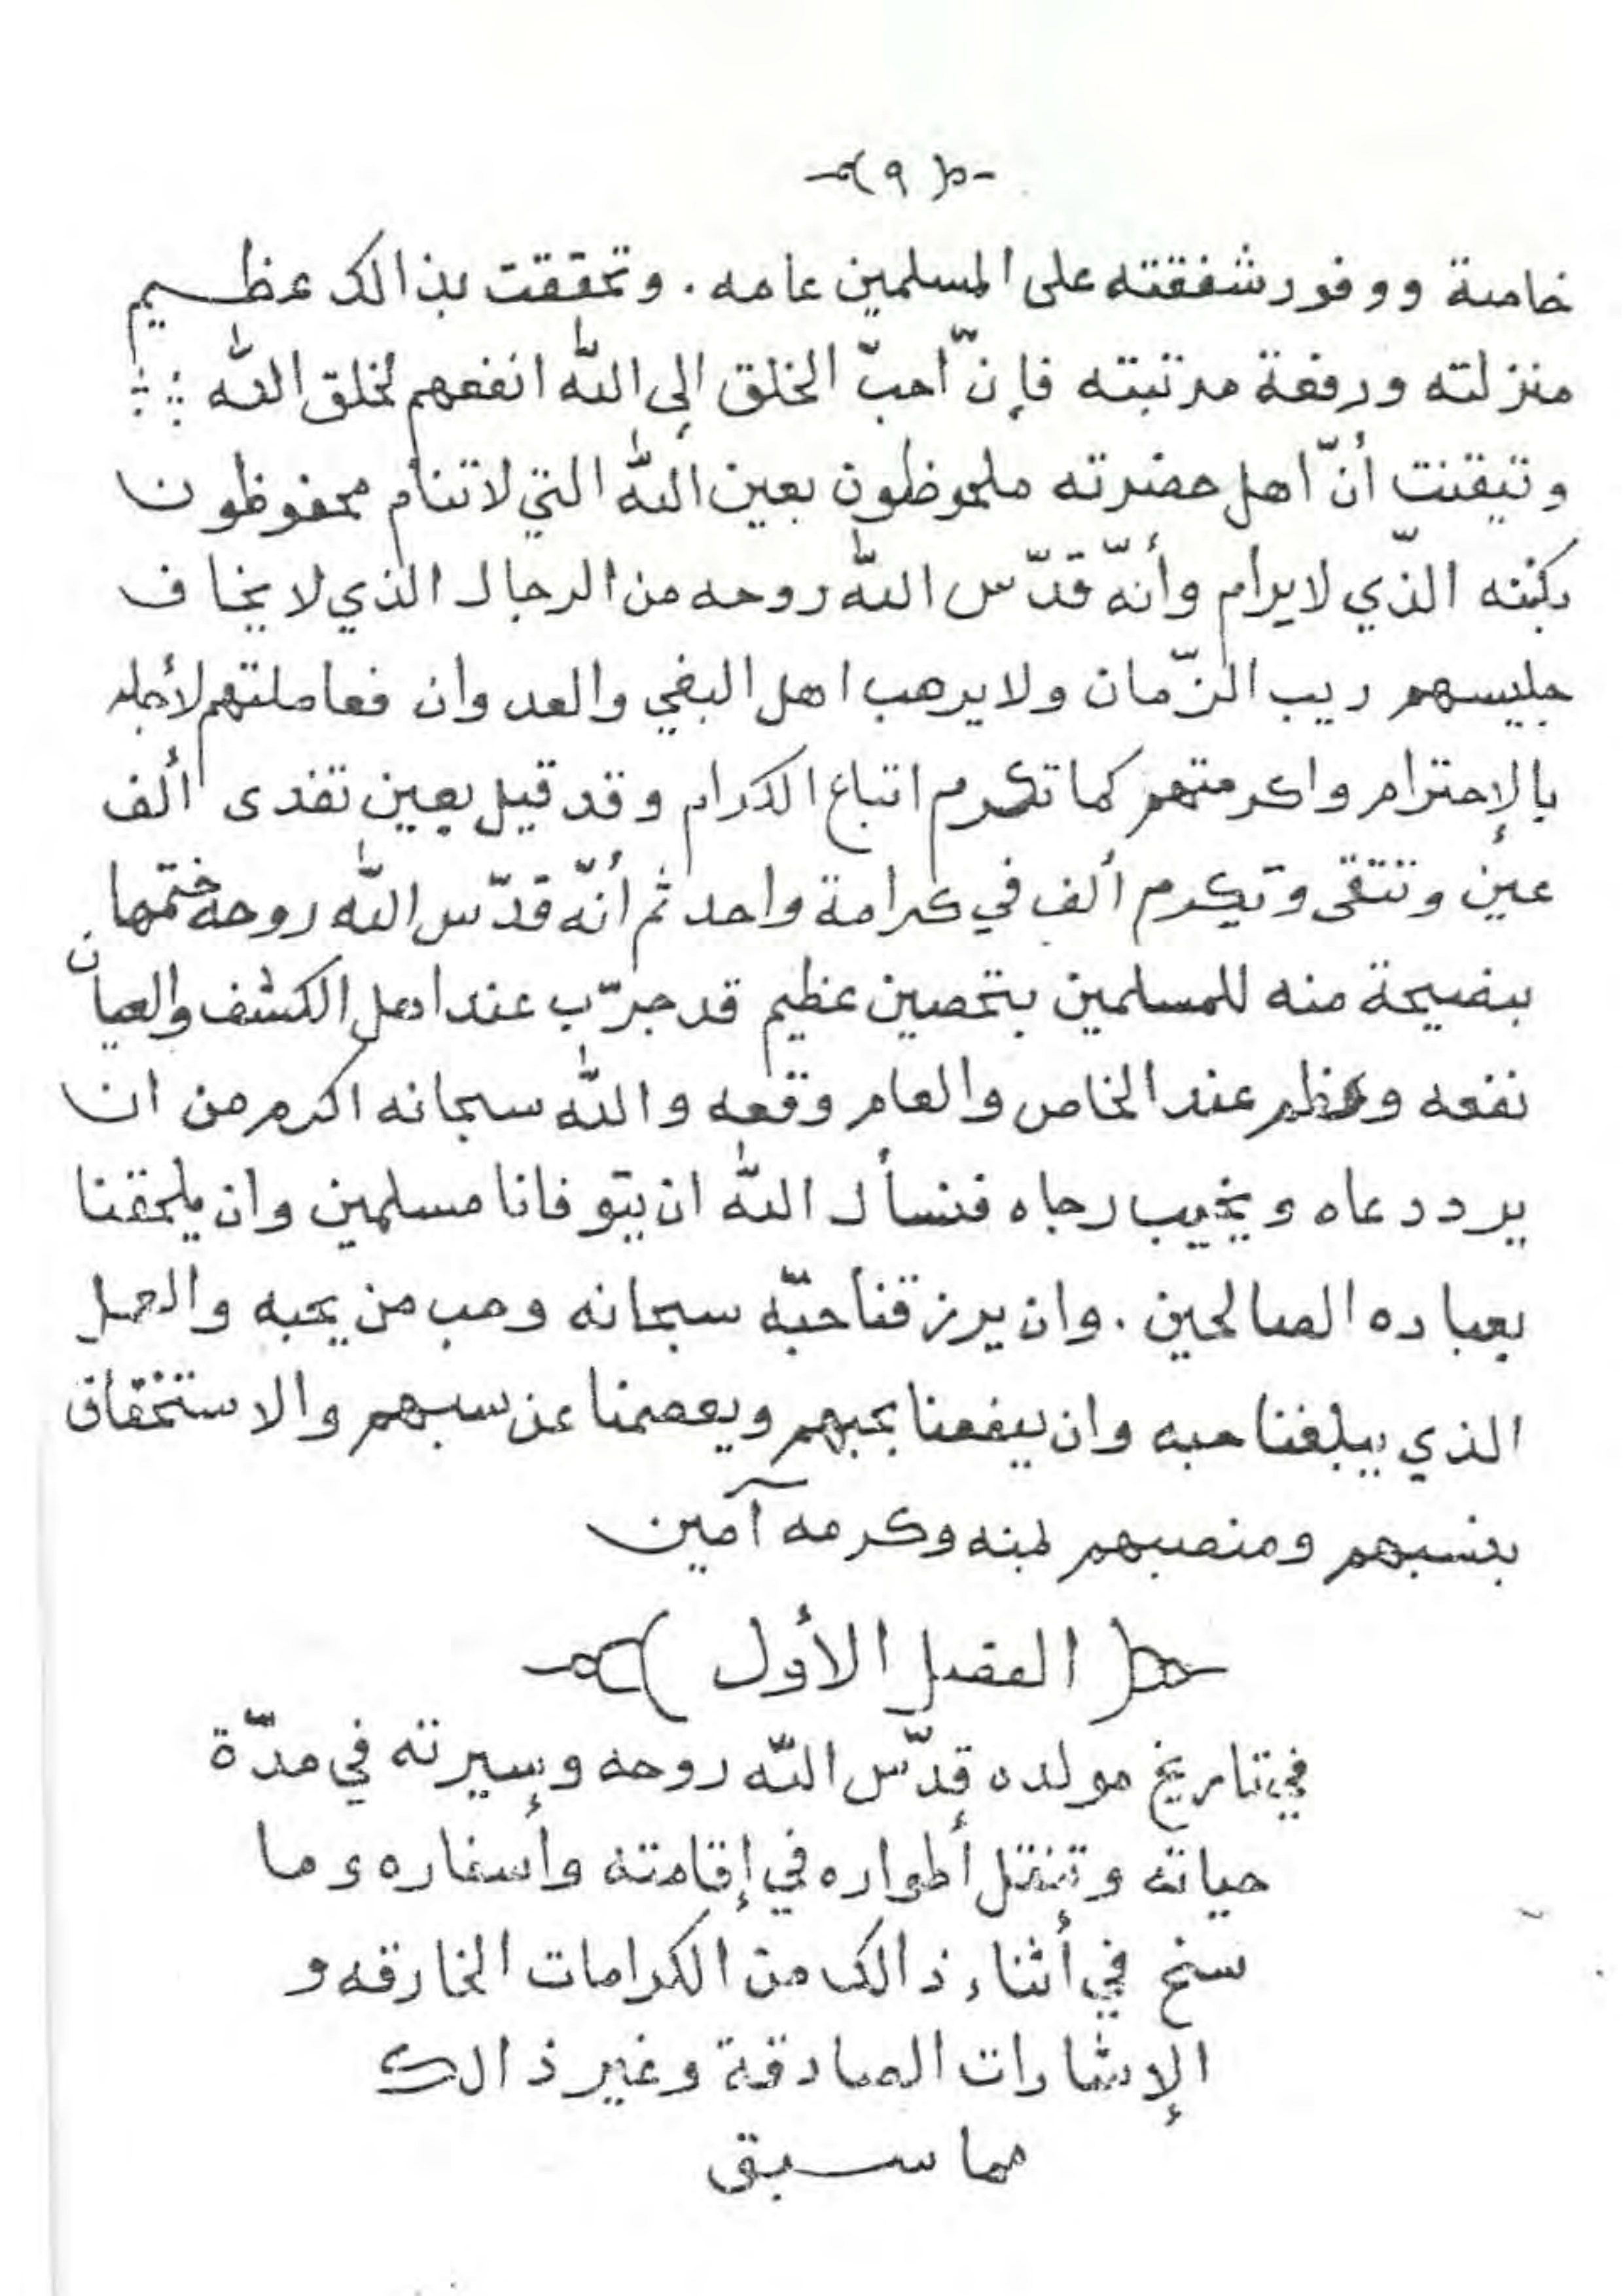 (٩)
خاصة ووفور شفقته على المسلمين عامه . وتحققت بذالك عظيم
منزلته ورفعة مرتبته فإنّ احبّ الخلق إلى اللّٰه انفعهم لخلق اللّٰه
وتيقنت أنّ اهل حضرته ملحوظون بعين اللّٰه التي لا تنام محفوظون
بكنفه الذّي لا يرام وأنّه قدّس اللّٰه روحه من الرجال الذي لا يخاف
جليسهم ريب الزّمان ولا يرهب اهل البغي والعدوان فعاملتهم لأجله
بالإحترام واكرمتهم كما تكرم اتباع الكرام وقد قيل بعين تفدى ألف
عين وتتقى وتكرم ألف في كرامة واحد ثم أنّه قدّس اللّٰه روحه ختمها
بنصيحة منه للمسلمين بتحصين عظيم قد جرّب عند اهل الكشف والعيان
نفعه وعظم عند الخاص والعام وقعه واللّٰه سبحانه اكرم من ان
يرد دعاه ويخيب رجاه فنسأل اللّٰه ان يتوفانا مسلمين وان يلحقنا
بعباده الصالحين . وان يرزقنا حبّه سبحانه وحب من يحبه والعمل
الذي يبلغنا حبه وان ينفعنا بحبهم ويعصمنا عن سبهم والاستخفاف
بنسبهم ومنصبهم بمنه وكرمه آمين
( الفصل الأول )
في تاريخ مولده قدّس اللّٰه روحه وسيرته في مدّة
حياته وتنقل أطواره في إقامته وأسفاره وما
سنح في أثناء ذالك من الكرامات الخارقه و
الإشارات الصادقة وغير ذالك
مما سبق